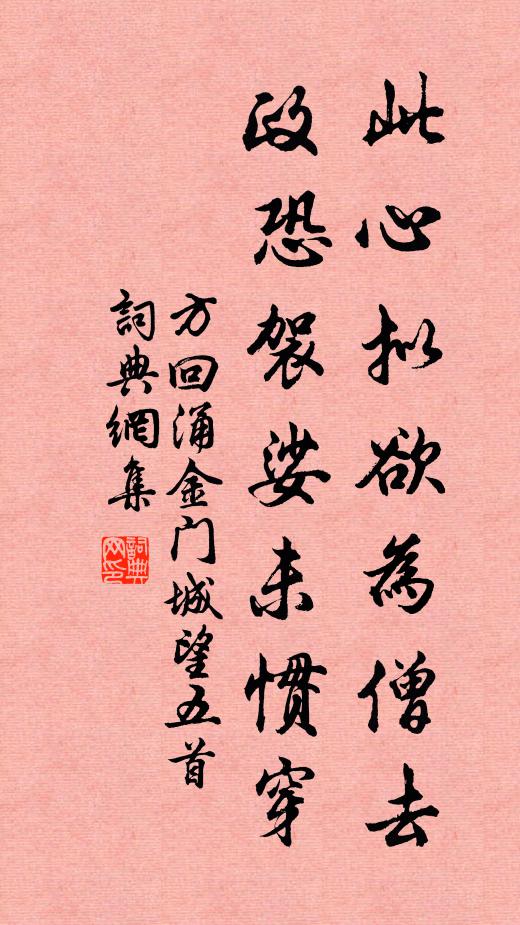 此心拟欲為僧去
政恐袈娑未慣穿
方回涌金门城望五首
詞典網集
詞典网印